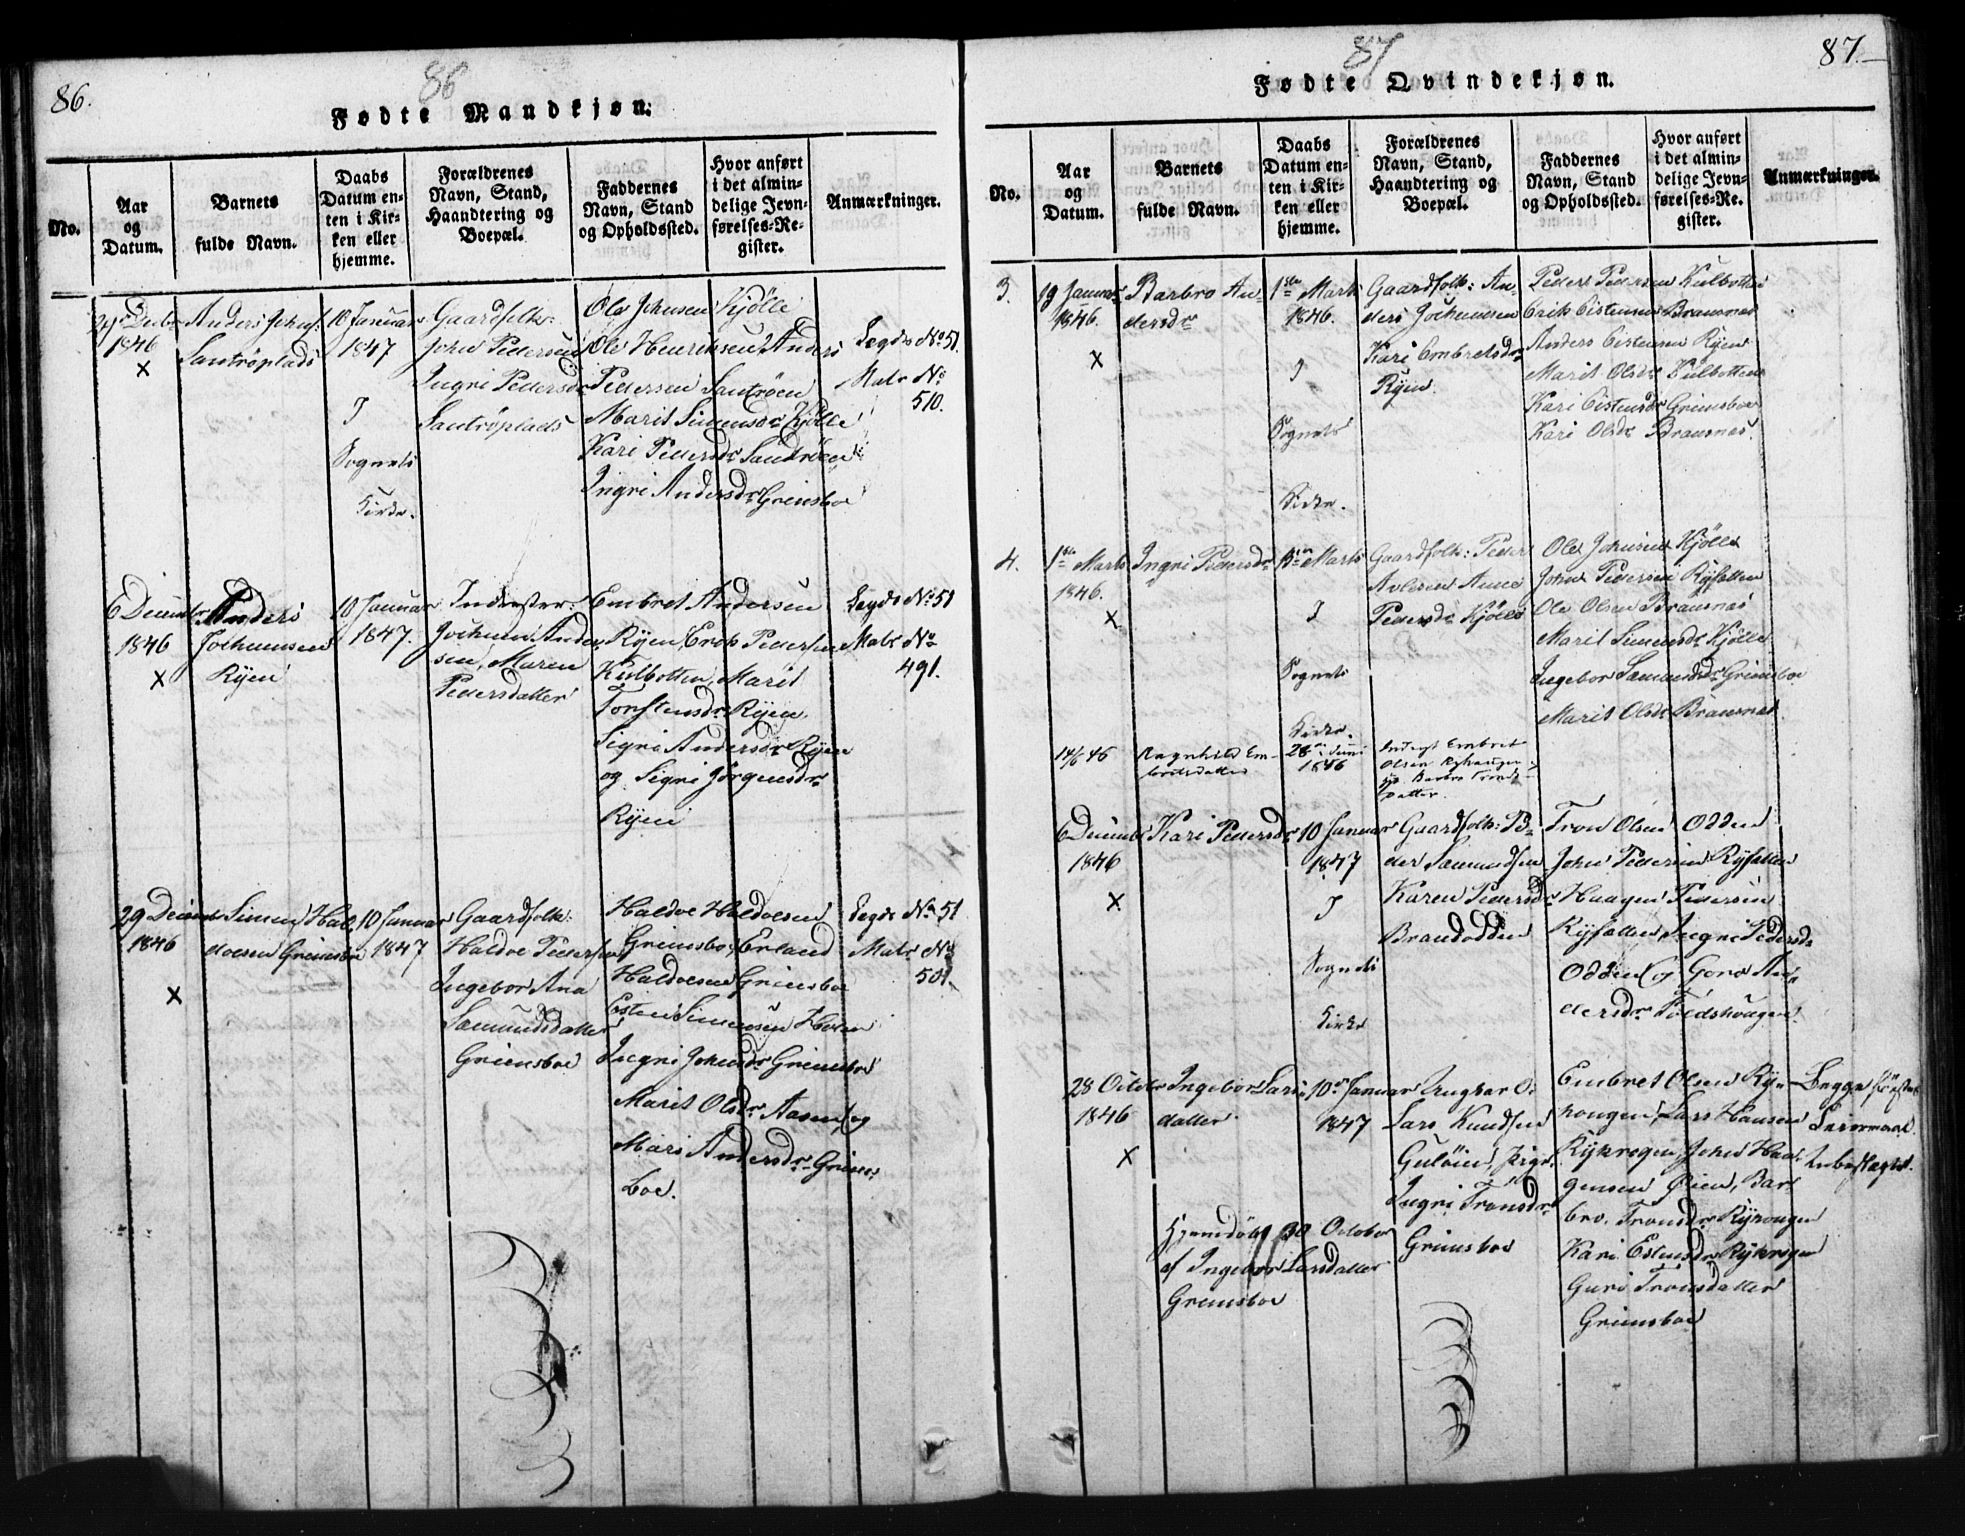 86.
86
Fødte Mandkjøn.
No.
Aar
og
Datum.
Barnets
fulde Navn.
Daabs
Datum en-
ten i Kir-
ken eller
hjemme.
Forældrenes
Navn, Stand,
Haandtering og
Boepæl.
Faddernes
Navn, Stand
og Opholdssted.
Hvor anført
i det almin-
delige Jevn-
førelses-Re-
gister.
Anmærkninger.
1846
X
Anders Johns:
Santröplads
10 Januar
1847
I
Sognets
Kirke.
Gaardfolk:
John Pedersen
Ingri Pedersdr
Santröplads
Ole Johnsen Kjölle
Ole Henriksen Anders
Pedersen Santröen
Marit Simensdr Kjölle
Kari Pedersdr Sandröen
Ingri Andersdr Grimsboe
Legds No 51.
Matr No
510.
6 Decembr
1846
X
Anders
Jochumsen
Ryen
10 Januar
1847.
Inderster:
Jochum Ander
sen, Maren
Pedersdatter
Embret Andersen
Ryen, Erik Pedersen
Kulbotten, Marit
Torstensdr Ryen
Sigri Andersdr Ryen
og Sigri Jörgensdr
Ryen
Legds No 51
Matr No
491.
29 Decemb
1846
X
Simen Hal
doesen Grimsbo
10 Januar
1847
Gaardfolk:
Haldoe Pedersen
Ingebor Ana
Samundsdatter
Grimsboe
Haldoe Haldoesen
Grimsboe, Erland
Haldoesen Grimsboe
Esten Simensen
Ingri Johnsdr Grimsboe
Marit Olsdr Aasen, og
Mari Andersdr Grims
boe.
Legds No 51
Matr No
501.
87
87.
Fødte Qvindekjøn.
No.
Aar
og
Datum.
Barnets
fulde Navn.
Daabs
Datum en-
ten i Kir-
ken eller
hjemme.
Forældrenes
Navn, Stand,
Haandtering og
Boepæl.
Faddernes
Navn, Stand
og Opholdssted.
Hvor anført
i det almin-
delige Jevn-
førelses-Re-
gister.
Anmærkninger.
3.
19 Januar
1846.
X
Barbro An
dersdr
1ste Marts
1846.
I
Sognets
Kirke.
Gaardfolk: An
ders Jochumsen
Kari Embretsdr
Ryen.
Peder Pedersen Kulbotten
Erik Eistensen Brausnes
Anders Eistensen Ryen
Marit Olsdr Kulbotten
Kari Eistensdr Grimsboe
Kari Olsdr Brausnes.
4.
1ste Marts
1846.
X
Ingri Pedersdr
Marts
I
Sognets
Kirke.
Gaardfolk: Peder
Anne
Pedersdr Kjölle
Ole Johnsen Kjölle
John Pedersen Ryfatten
Ole Olsen Brausnes
Marit Simensdr Kjölle
Ingebor Samundsdr Grimsboe
Marit Olsdr Brausnes
14/6 46
Ragnhild Em-
bretsdatter
28de Juni
1846
Embret
Olsen
Barbro Trons
datter.
6 Decemb
1846
X
Kari Pedersdr
10 Januar
1847
I
Sognets
Kirke
Gaardfolk: Pe
der Samundsen
Karen Pedersdr
Brandodden
Tron Olsen Odden
John Pedersen Ryfatten
Haagen Pedersen
Ryfatten, Ingri Pedersdr
Odden og Goro An
dersdr
28 Octobr
1846
X
Ingebor Lars
datter
10de Januar
1847
Ungkar O.
Lars Knudsen
Gulöien, Pige
Ingri Tronsdr
Grimsboe
Embret Olsen Ry
hougen, Lars Hansen
John Haa
gensen Öien, Bar
bro Tronsdr Ryhougen
Kari Estensdr
Guri Tronsdatter
Grimsboe
Begges første
Leiermaal
Hjemdöbt 30 October
af Ingebor Larsdatter
Grimsboe